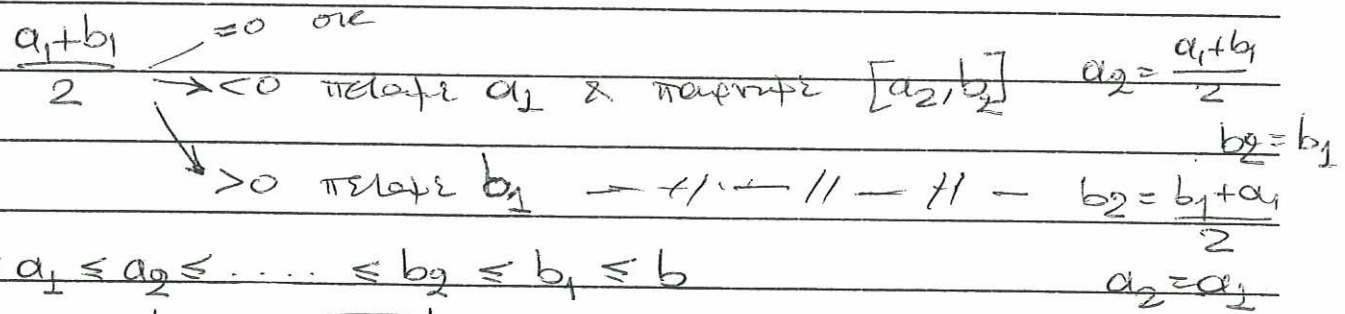 (a₁+b₁)/2 =0 οκ
→ <0 πετάμε a₁ & παίρνουμε [a₂,b₂] a₂ = (a₁+b₁)/2
b₂=b₁
>0 πετάμε b₁ — // — // — // — b₂ = (b₁+a₁)/2
a₁ ≤ a₂ ≤ ..... ≤ b₂ ≤ b₁ ≤ b a₂=a₁